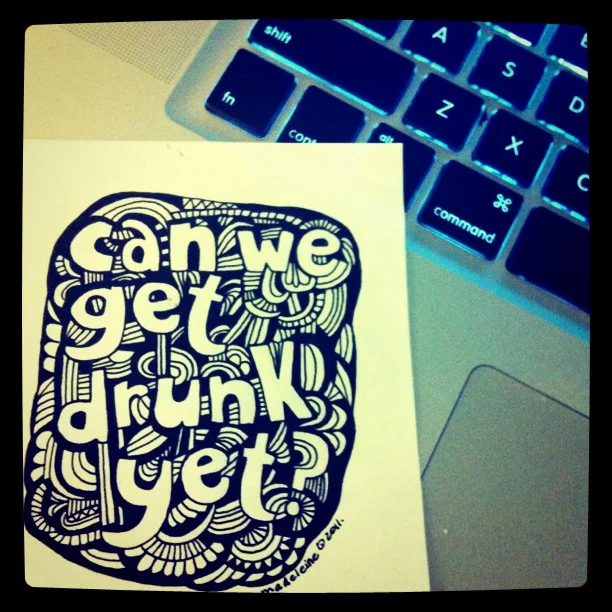 shift
A
S
D
fn
Z
X
C
alt
⌘
command
can we
get
drunk
yet?
madeleine © 2011.